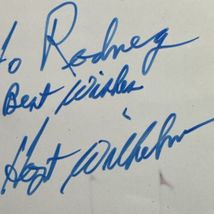 To Rodney
Best Wishes
Hoyt Wilhelm